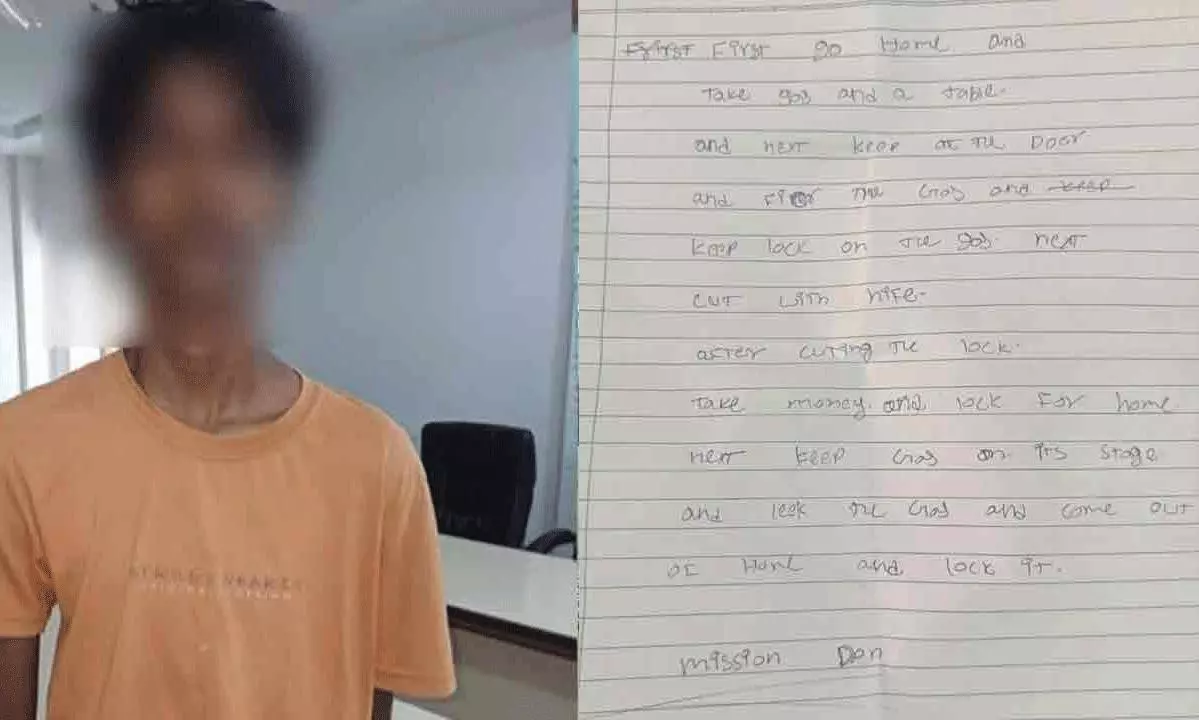 First go Home and
Take gas and a table.
and next keep at the Door
and the Gas and keep
keep lock on the gas. next
cut with nife.
after cuting the lock.
Take money. and lock for home.
next keep Gas on its stage
and leek the Gas and come out
of Home and lock it.
mission Don